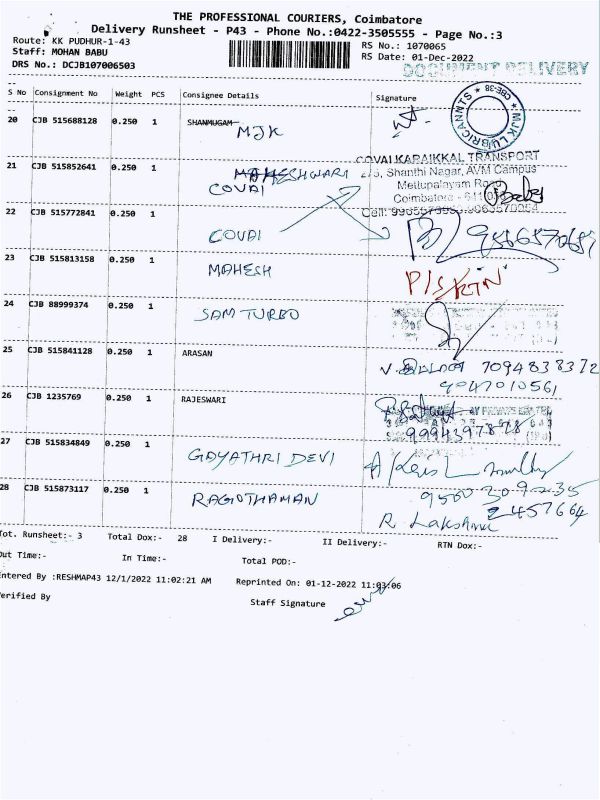 THE PROFESSIONAL COURIERS, Coimbatore
Delivery Runsheet - P43 - Phone No.:0422-3505555 - Page No.:3
Route: KK PUDHUR-1-43
Staff: MOHAN BABU
DRS No.: DCJB107006503
RS No.: 1070065
RS Date: 01-Dec-2022
DOCUMENT DELIVERY
S No Consignment No Weight PCS Consignee Details Signature
20 CJB 515688128 0.250 1 SHANMUGAM
MJK
MJK LUBRICANTS * CBE-38 *
21 CJB 515852641 0.250 1 MAHESHWARI
COVAI
COVAI KARAIKKAL TRANSPORT
2/5, Shanthi Nagar, AVM Campus
Mettupalayam Road
Coimbatore - 641
22 CJB 515772841 0.250 1
COVAI
23 CJB 515813158 0.250 1
MAHESH
24 CJB 88999374 0.250 1
SAM TURBO
25 CJB 515841128 0.250 1 ARASAN
7094838372
9047010561
26 CJB 1235769 0.250 1 RAJESWARI
9994397878
27 CJB 515834849 0.250 1
GAYATHRI DEVI
28 CJB 515873117 0.250 1
RAGOTHAMAN
2457664
R. Lakshmi
Tot. Runsheet:- 3 Total Dox:- 28 I Delivery:- II Delivery:- RTN Dox:-
Out Time:- In Time:- Total POD:-
Entered By :RESHMAP43 12/1/2022 11:02:21 AM Reprinted On: 01-12-2022 11:03:06
Verified By Staff Signature